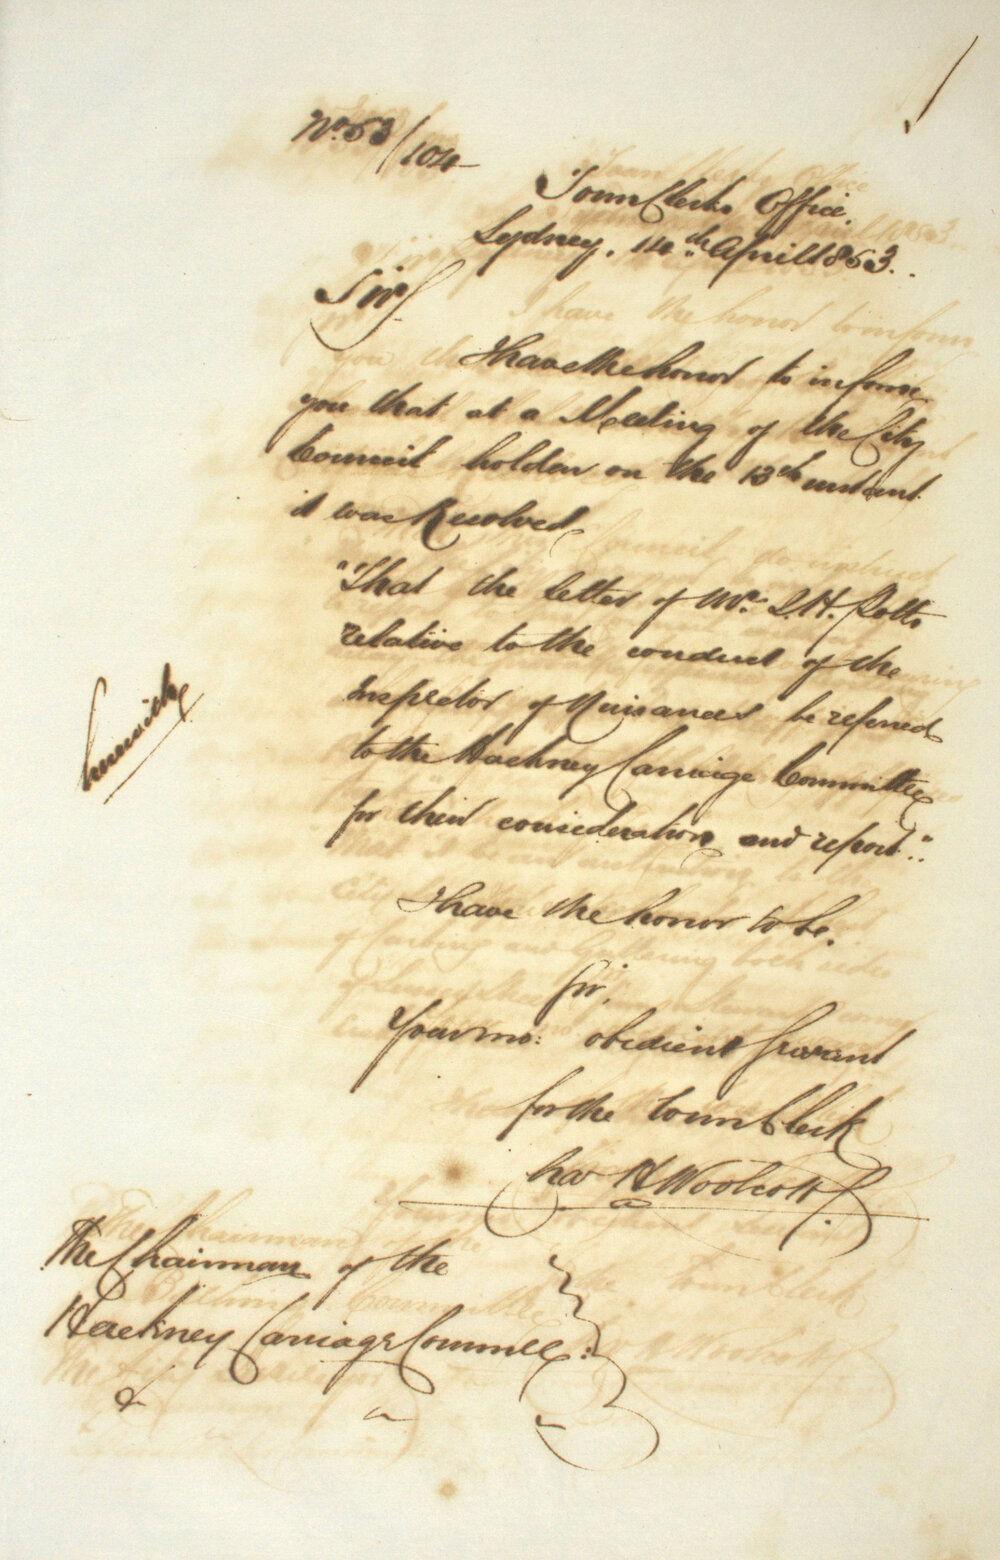 No. 63/104
Town Clerks Office.
Sydney. 14th April 1863.
Sir,
I have the honor to inform
you that at a Meeting of the City
Council holden on the 13th instant
it was Resolved
"That the letter of Mr. J. H. Potts
relative to the conduct of the
Inspector of Nuisances be referred
to the Hackney Carriage Committee
for their consideration and report."
I have the honor to be.
Sir,
Your mo: obedient Servant
for the Town Clerk
Chas H Woolcott
The Chairman of the
Hackney Carriage Commee: